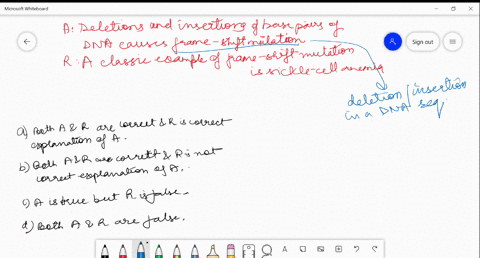 Microsoft Whiteboard
Sign out
A: Deletions and insertions of base pairs of
DNA causes frame-shift mutation
R: A classic example of frame-shift mutation
is sickle-cell anemia
deletion/insertion
in a DNA seq
a) Both A & R are correct & R is correct
explanation of A.
b) Both A & R are correct & R is not
correct explanation of A.
c) A is true but R is false.
d) Both A & R are false.